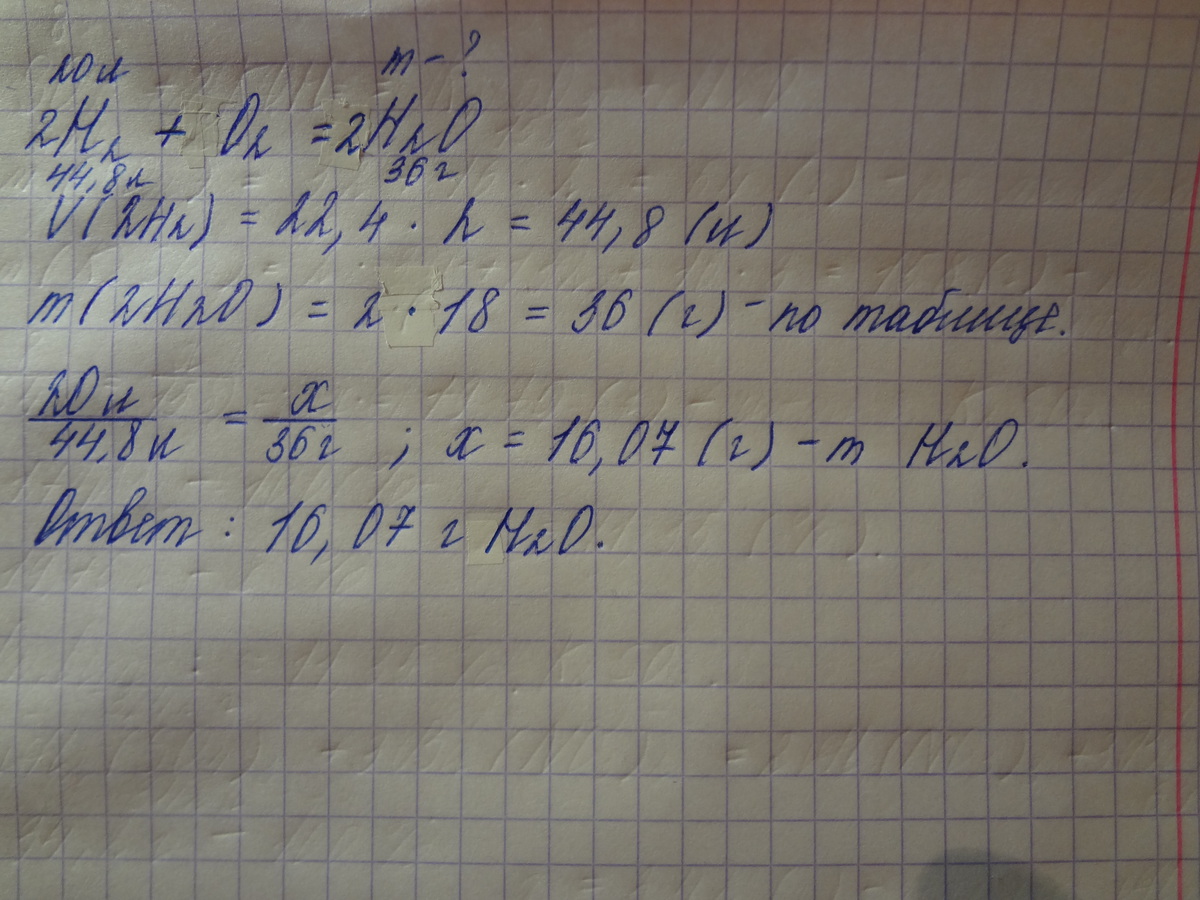 20 л m - ?
2H₂ + O₂ = 2H₂O
44,8 л 36 г
V(2H₂) = 22,4 · 2 = 44,8 (л)
m(2H₂O) = 2 · 18 = 36 (г) - по таблице.
20 л / 44,8 л = x / 36 г ; x = 16,07 (г) - m H₂O.
Ответ : 16,07 г H₂O.